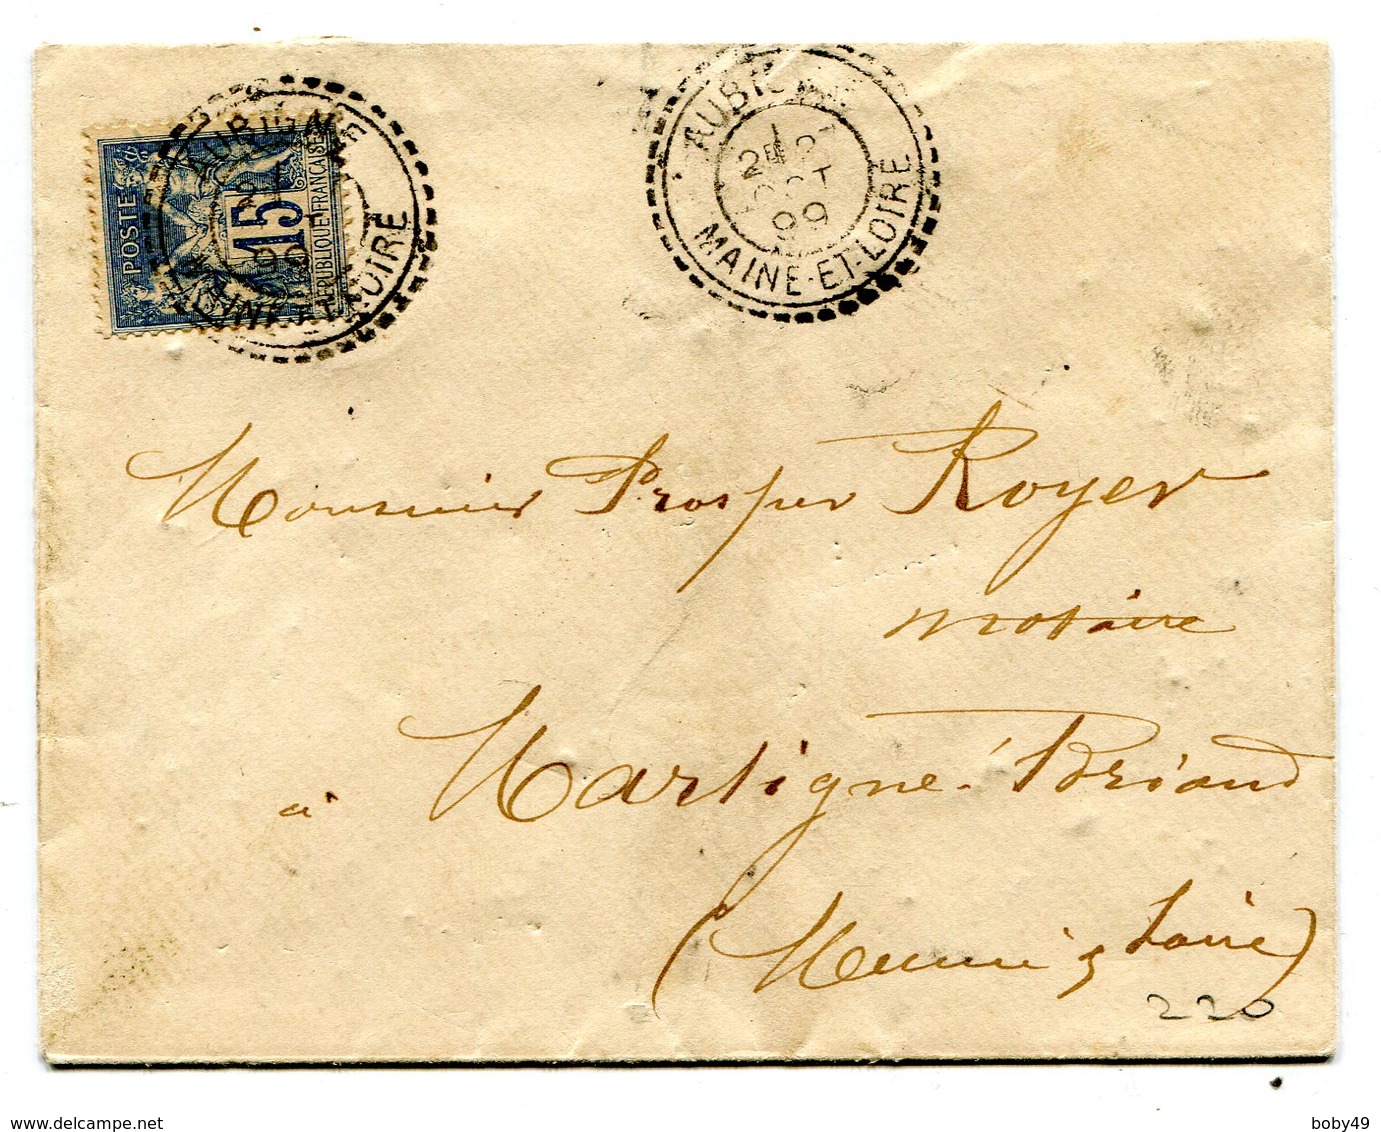 POSTES
15
RÉPUBLIQUE FRANÇAISE
AUBIGNÉ
MAINE-ET-LOIRE
AUBIGNÉ
2E
OCT
99
MAINE-ET-LOIRE
Monsieur Prosper Royer
notaire
à Martigné-Briand
(Maine & Loire)
220
boby49